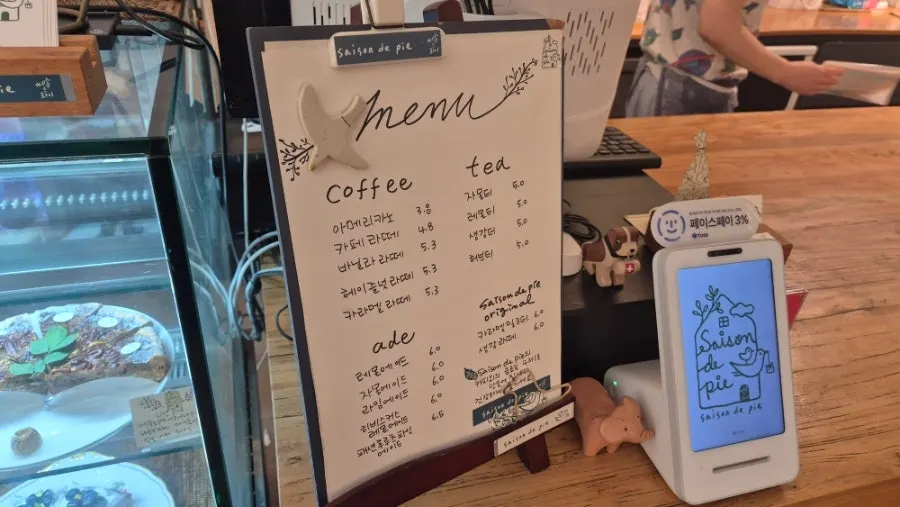 saison de pie
menu
coffee
아메리카노 3.8
카페라떼 4.8
바닐라 라떼 5.3
헤이즐넛 라떼 5.3
카라멜 라떼 5.3
ade
레몬에이드 6.0
자몽에이드 6.0
라임에이드 6.0
히비스커스
레몬에이드 6.5
패션후르츠파인
에이드
tea
자몽티 5.0
레몬티 5.0
생강티 5.0
허브티 5.0
saison de pie
original
카라멜밀크티 6.0
생강라떼 6.0
saison de pie의
saison de pie
saison de pie
페이스페이 3%
Saison
de
pie
saison de pie
pie